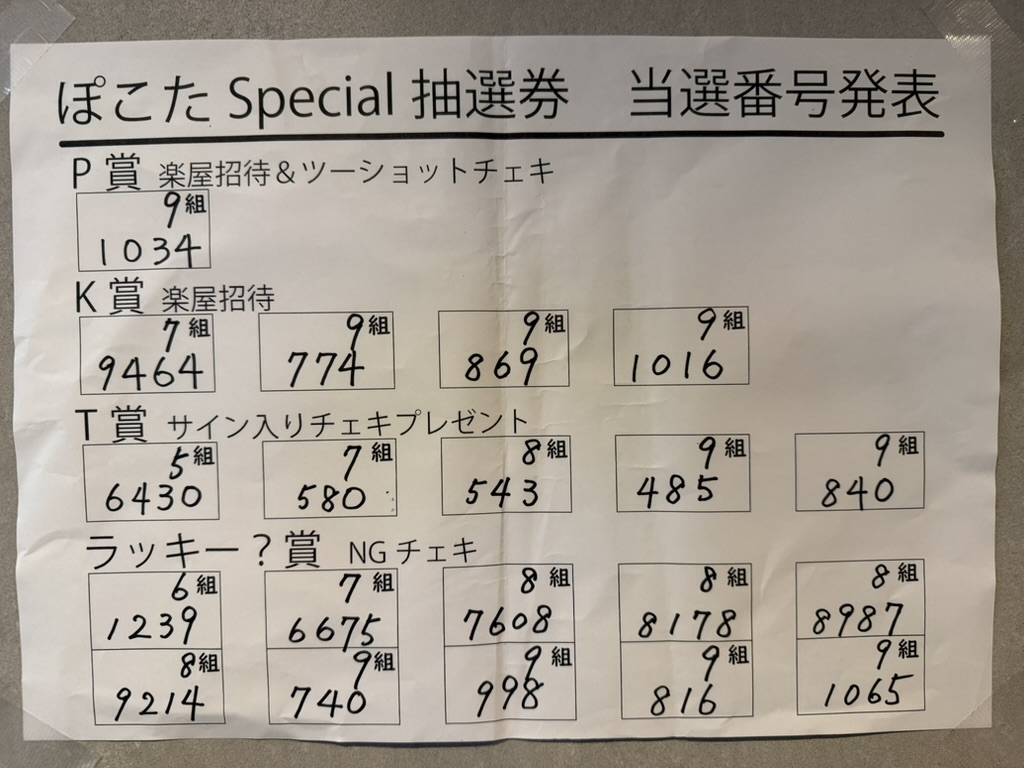 ぽこた Special 抽選券　当選番号発表
P 賞 楽屋招待＆ツーショットチェキ
9組
1034
K 賞 楽屋招待
7組 9組 9組 9組
9464 774 869 1016
T 賞 サイン入りチェキプレゼント
5組 7組 8組 9組 9組
6430 580 543 485 840
ラッキー？賞 NG チェキ
6組 7組 8組 8組 8組
1239 6675 7608 8178 8987
8組 9組 9組 9組 9組
9214 740 998 816 1065